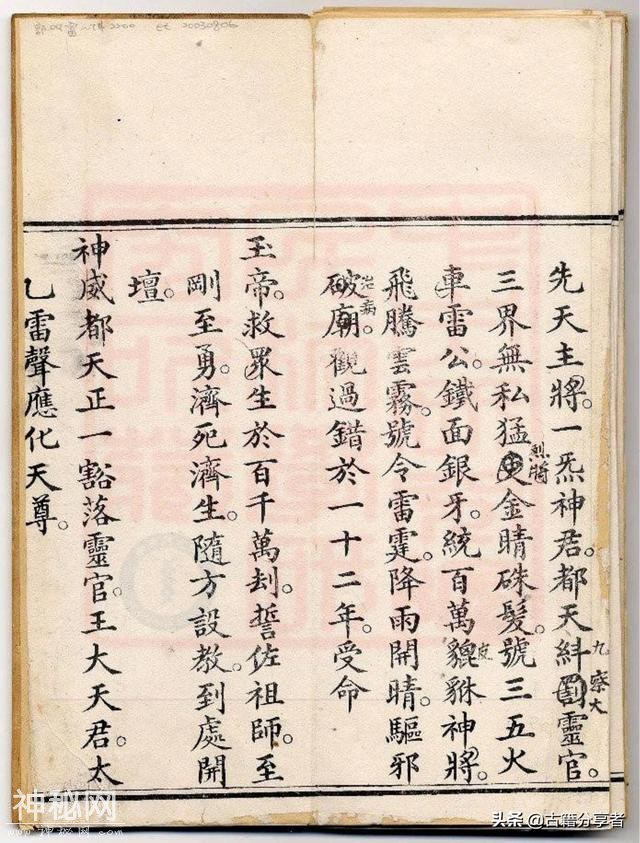 先天主將。一炁神君。都天糾罰靈官。
九 察大
三界無私猛吏。金睛硃髮。號三五火
烈將
車雷公。鐵面銀牙。統百萬貔貅神將。
皮
飛騰雲霧。號令雷霆。降雨開晴。驅邪
治病。
破廟。觀過錯於一十二年。受命
玉帝。救眾生於百千萬刦。誓佐祖師。至
剛至勇。濟死濟生。隨方設教。到處開
壇。
神威都天正一豁落靈官。王大天君。太
乙雷聲應化天尊。
神秘网
头条 @古籍分享者